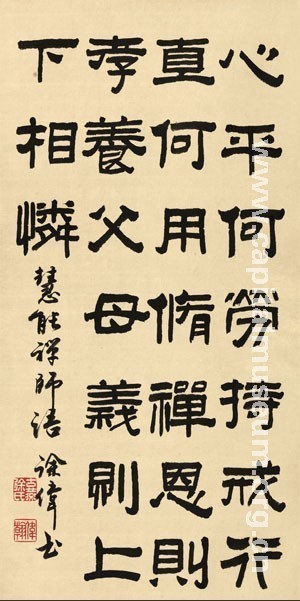 心平何勞持戒行
直何用脩禪恩則
孝養父母義則上
下相憐
慧能禪師語 徐偉书
www.capitalmuseum.org.cn